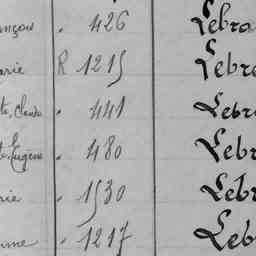 nçois . 426 Lebra
arie R 1215 Lebre
te, Claude . 441 Lebr
t, Eugène . 480 Lebr
rie . 1530 Lebr
mme . 1217 Leb